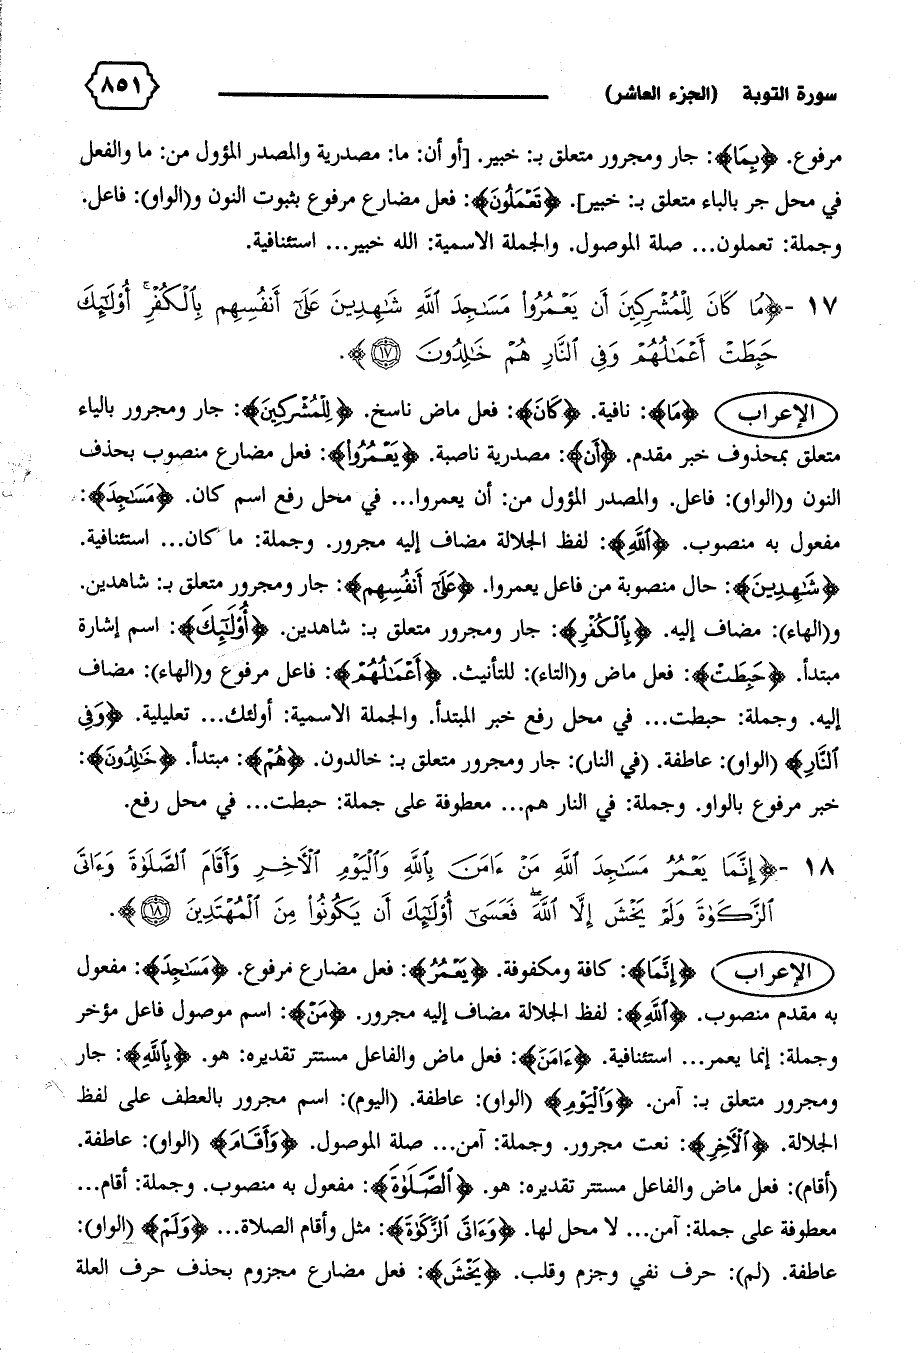 سورة التوبة (الجزء العاشر) ٨٥١
مرفوع. ﴿بِمَا﴾: جار ومجرور متعلق بـ: خبير. [أو أن: ما: مصدرية والمصدر المؤول من: ما والفعل
في محل جر بالباء متعلق بـ: خبير]. ﴿تَعْمَلُونَ﴾: فعل مضارع مرفوع بثبوت النون و(الواو): فاعل.
وجملة: تعملون... صلة الموصول. والجملة الاسمية: الله خبير... استئنافية.
١٧ -﴿مَا كَانَ لِلْمُشْرِكِينَ أَن يَعْمُرُوا۟ مَسَـٰجِدَ ٱللَّهِ شَـٰهِدِينَ عَلَىٰٓ أَنفُسِهِم بِٱلْكُفْرِ ۚ أُو۟لَـٰٓئِكَ
حَبِطَتْ أَعْمَـٰلُهُمْ وَفِى ٱلنَّارِ هُمْ خَـٰلِدُونَ ١٧﴾.
الإعراب ﴿مَا﴾: نافية. ﴿كَانَ﴾: فعل ماض ناسخ. ﴿لِلْمُشْرِكِينَ﴾: جار ومجرور بالياء
متعلق بمحذوف خبر مقدم. ﴿أَن﴾: مصدرية ناصبة. ﴿يَعْمُرُوا۟﴾: فعل مضارع منصوب بحذف
النون و(الواو): فاعل. والمصدر المؤول من: أن يعمروا... في محل رفع اسم كان. ﴿مَسَـٰجِدَ﴾:
مفعول به منصوب. ﴿ٱللَّهِ﴾: لفظ الجلالة مضاف إليه مجرور. وجملة: ما كان... استئنافية.
﴿شَـٰهِدِينَ﴾: حال منصوبة من فاعل يعمروا. ﴿عَلَىٰٓ أَنفُسِهِم﴾: جار ومجرور متعلق بـ: شاهدين.
و(الهاء): مضاف إليه. ﴿بِٱلْكُفْرِ﴾: جار ومجرور متعلق بـ: شاهدين. ﴿أُو۟لَـٰٓئِكَ﴾: اسم إشارة
مبتدأ. ﴿حَبِطَتْ﴾: فعل ماض و(التاء): للتأنيث. ﴿أَعْمَـٰلُهُمْ﴾: فاعل مرفوع و(الهاء): مضاف
إليه. وجملة: حبطت... في محل رفع خبر المبتدأ. والجملة الاسمية: أولئك... تعليلية. ﴿وَفِى
ٱلنَّارِ﴾ (الواو): عاطفة. (في النار): جار ومجرور متعلق بـ: خالدون. ﴿هُمْ﴾: مبتدأ. ﴿خَـٰلِدُونَ﴾:
خبر مرفوع بالواو. وجملة: في النار هم... معطوفة على جملة: حبطت... في محل رفع.
١٨ -﴿إِنَّمَا يَعْمُرُ مَسَـٰجِدَ ٱللَّهِ مَنْ ءَامَنَ بِٱللَّهِ وَٱلْيَوْمِ ٱلْـَٔاخِرِ وَأَقَامَ ٱلصَّلَوٰةَ وَءَاتَى
ٱلزَّكَوٰةَ وَلَمْ يَخْشَ إِلَّا ٱللَّهَ ۖ فَعَسَىٰٓ أُو۟لَـٰٓئِكَ أَن يَكُونُوا۟ مِنَ ٱلْمُهْتَدِينَ ١٨﴾.
الإعراب ﴿إِنَّمَا﴾: كافة ومكفوفة. ﴿يَعْمُرُ﴾: فعل مضارع مرفوع. ﴿مَسَـٰجِدَ﴾: مفعول
به مقدم منصوب. ﴿ٱللَّهِ﴾: لفظ الجلالة مضاف إليه مجرور. ﴿مَنْ﴾: اسم موصول فاعل مؤخر
وجملة: إنما يعمر... استئنافية. ﴿ءَامَنَ﴾: فعل ماض والفاعل مستتر تقديره: هو. ﴿بِٱللَّهِ﴾: جار
ومجرور متعلق بـ: آمن. ﴿وَٱلْيَوْمِ﴾ (الواو): عاطفة. (اليوم): اسم مجرور بالعطف على لفظ
الجلالة. ﴿ٱلْـَٔاخِرِ﴾: نعت مجرور. وجملة: آمن... صلة الموصول. ﴿وَأَقَامَ﴾ (الواو): عاطفة.
(أقام): فعل ماض والفاعل مستتر تقديره: هو. ﴿ٱلصَّلَوٰةَ﴾: مفعول به منصوب. وجملة: أقام...
معطوفة على جملة: آمن... لا محل لها. ﴿وَءَاتَى ٱلزَّكَوٰةَ﴾: مثل وأقام الصلاة... ﴿وَلَمْ﴾ (الواو):
عاطفة. (لم): حرف نفي وجزم وقلب. ﴿يَخْشَ﴾: فعل مضارع مجزوم بحذف حرف العلة